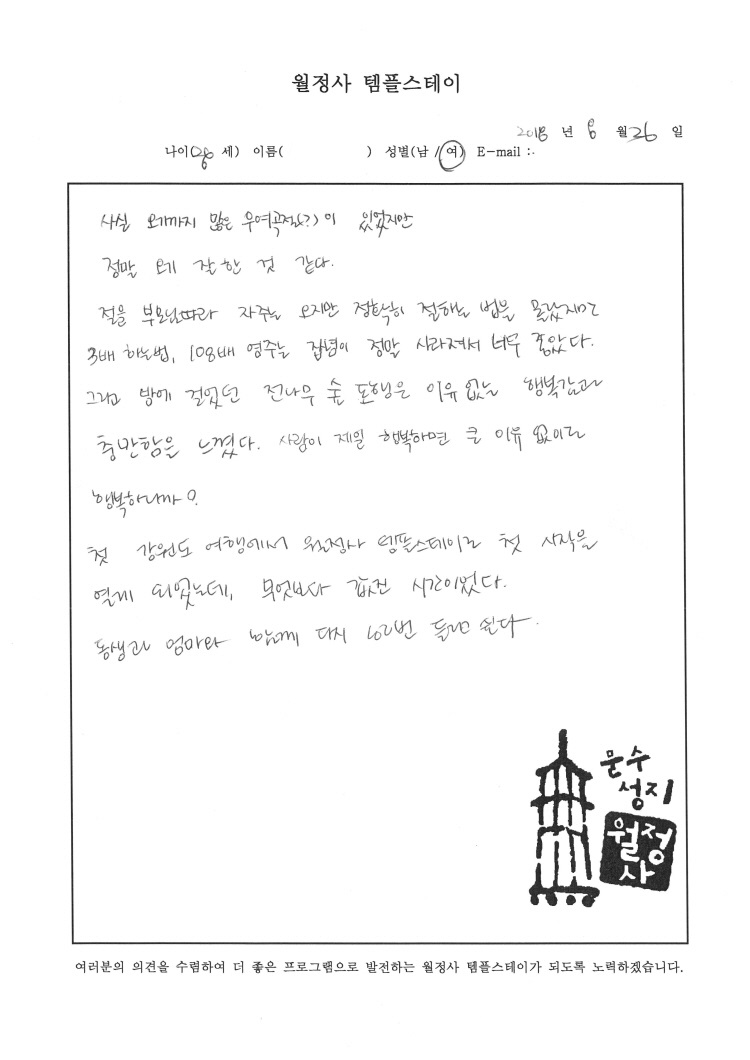 월정사 템플스테이
2018 년 8 월 26 일
나이(28 세) 이름( ) 성별(남 / 여) E-mail :.
사실 오기까지 많은 우여곡절(?)이 있었지만
정말 오게 잘 한 것 같다.
절을 부모님따라 자주는 오지만 정확히 절하는 법을 몰랐지만
3배 하는법, 108배 염주는 잡념이 정말 사라져서 너무 좋았다.
그리고 밤에 걸었던 전나무 숲 포행은 이유없는 행복감과
충만함을 느꼈다. 사람이 제일 행복하면 큰 이유 없이도
행복하니까?
첫 강원도 여행에서 월정사 템플스테이로 첫 시작을
열게 되었는데, 무엇보다 값진 시간이었다.
동생과 엄마와 함께 다시 한번 들리고 싶다.
문수
성지
월정
사
여러분의 의견을 수렴하여 더 좋은 프로그램으로 발전하는 월정사 템플스테이가 되도록 노력하겠습니다.